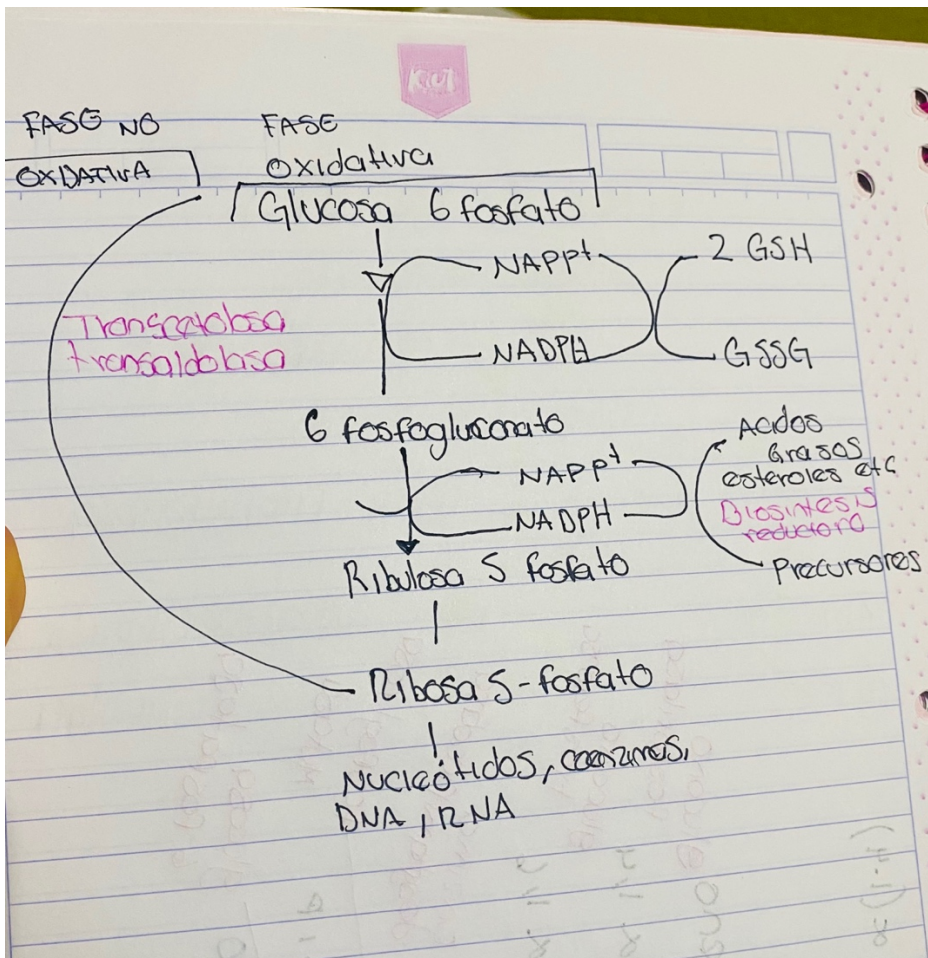 FASE NO
OXIDATIVA
FASE
Oxidativa
Glucosa 6 fosfato
NAPP+
2 GSH
Transcetolasa
transaldolasa
NADPH
GSSG
6 fosfogluconato
Acidos
Grasos
esteroles etc
NAPP+
Biosintesis
reductora
NADPH
Precursores
Ribulosa 5 fosfato
Ribosa 5-fosfato
Nucleótidos, coenzimas,
DNA, RNA